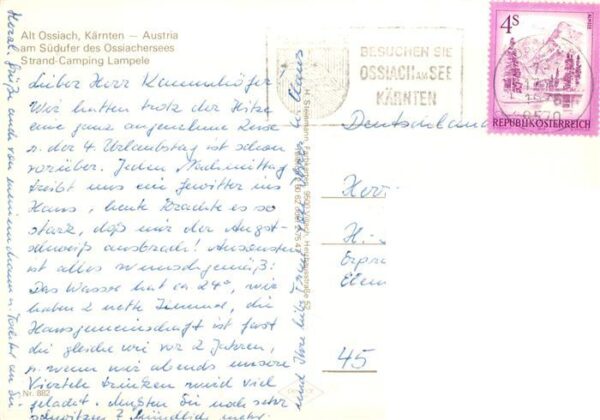 Alt Ossiach, Kärnten — Austria
am Südufer des Ossiachersees
Strand-Camping Lampele
Lieber Herr
Wir hatten trotz der Hitze
eine ganz angenehme Reise
u. der 4. Urlaubstag ist schon
vorüber. Jeden Nachmittag
treibt uns ein Gewitter ins
Haus, heute krachte es so
stark, daß mir der Angst-
schweiß ausbrach! Ansonsten
ist alles wunschgemäß:
Das Wasser hat ca 24°, wir
haben 2 nette Zimmer, die
Hausgemeinschaft ist fast
die gleiche wie vor 2 Jahren,
u. wenn wir abends unsere
Viertele trinken wird viel
gelacht. Mußten Sie noch sehr
schwitzen? Mündlich mehr.
Herzl. Grüße auch von meinem Mann u. Tochter an Sie
und Ihre
Nr. 882
BESUCHEN SIE
OSSIACH AM SEE
KÄRNTEN
4S
REPUBLIK ÖSTERREICH
Deutschland
Herr
45